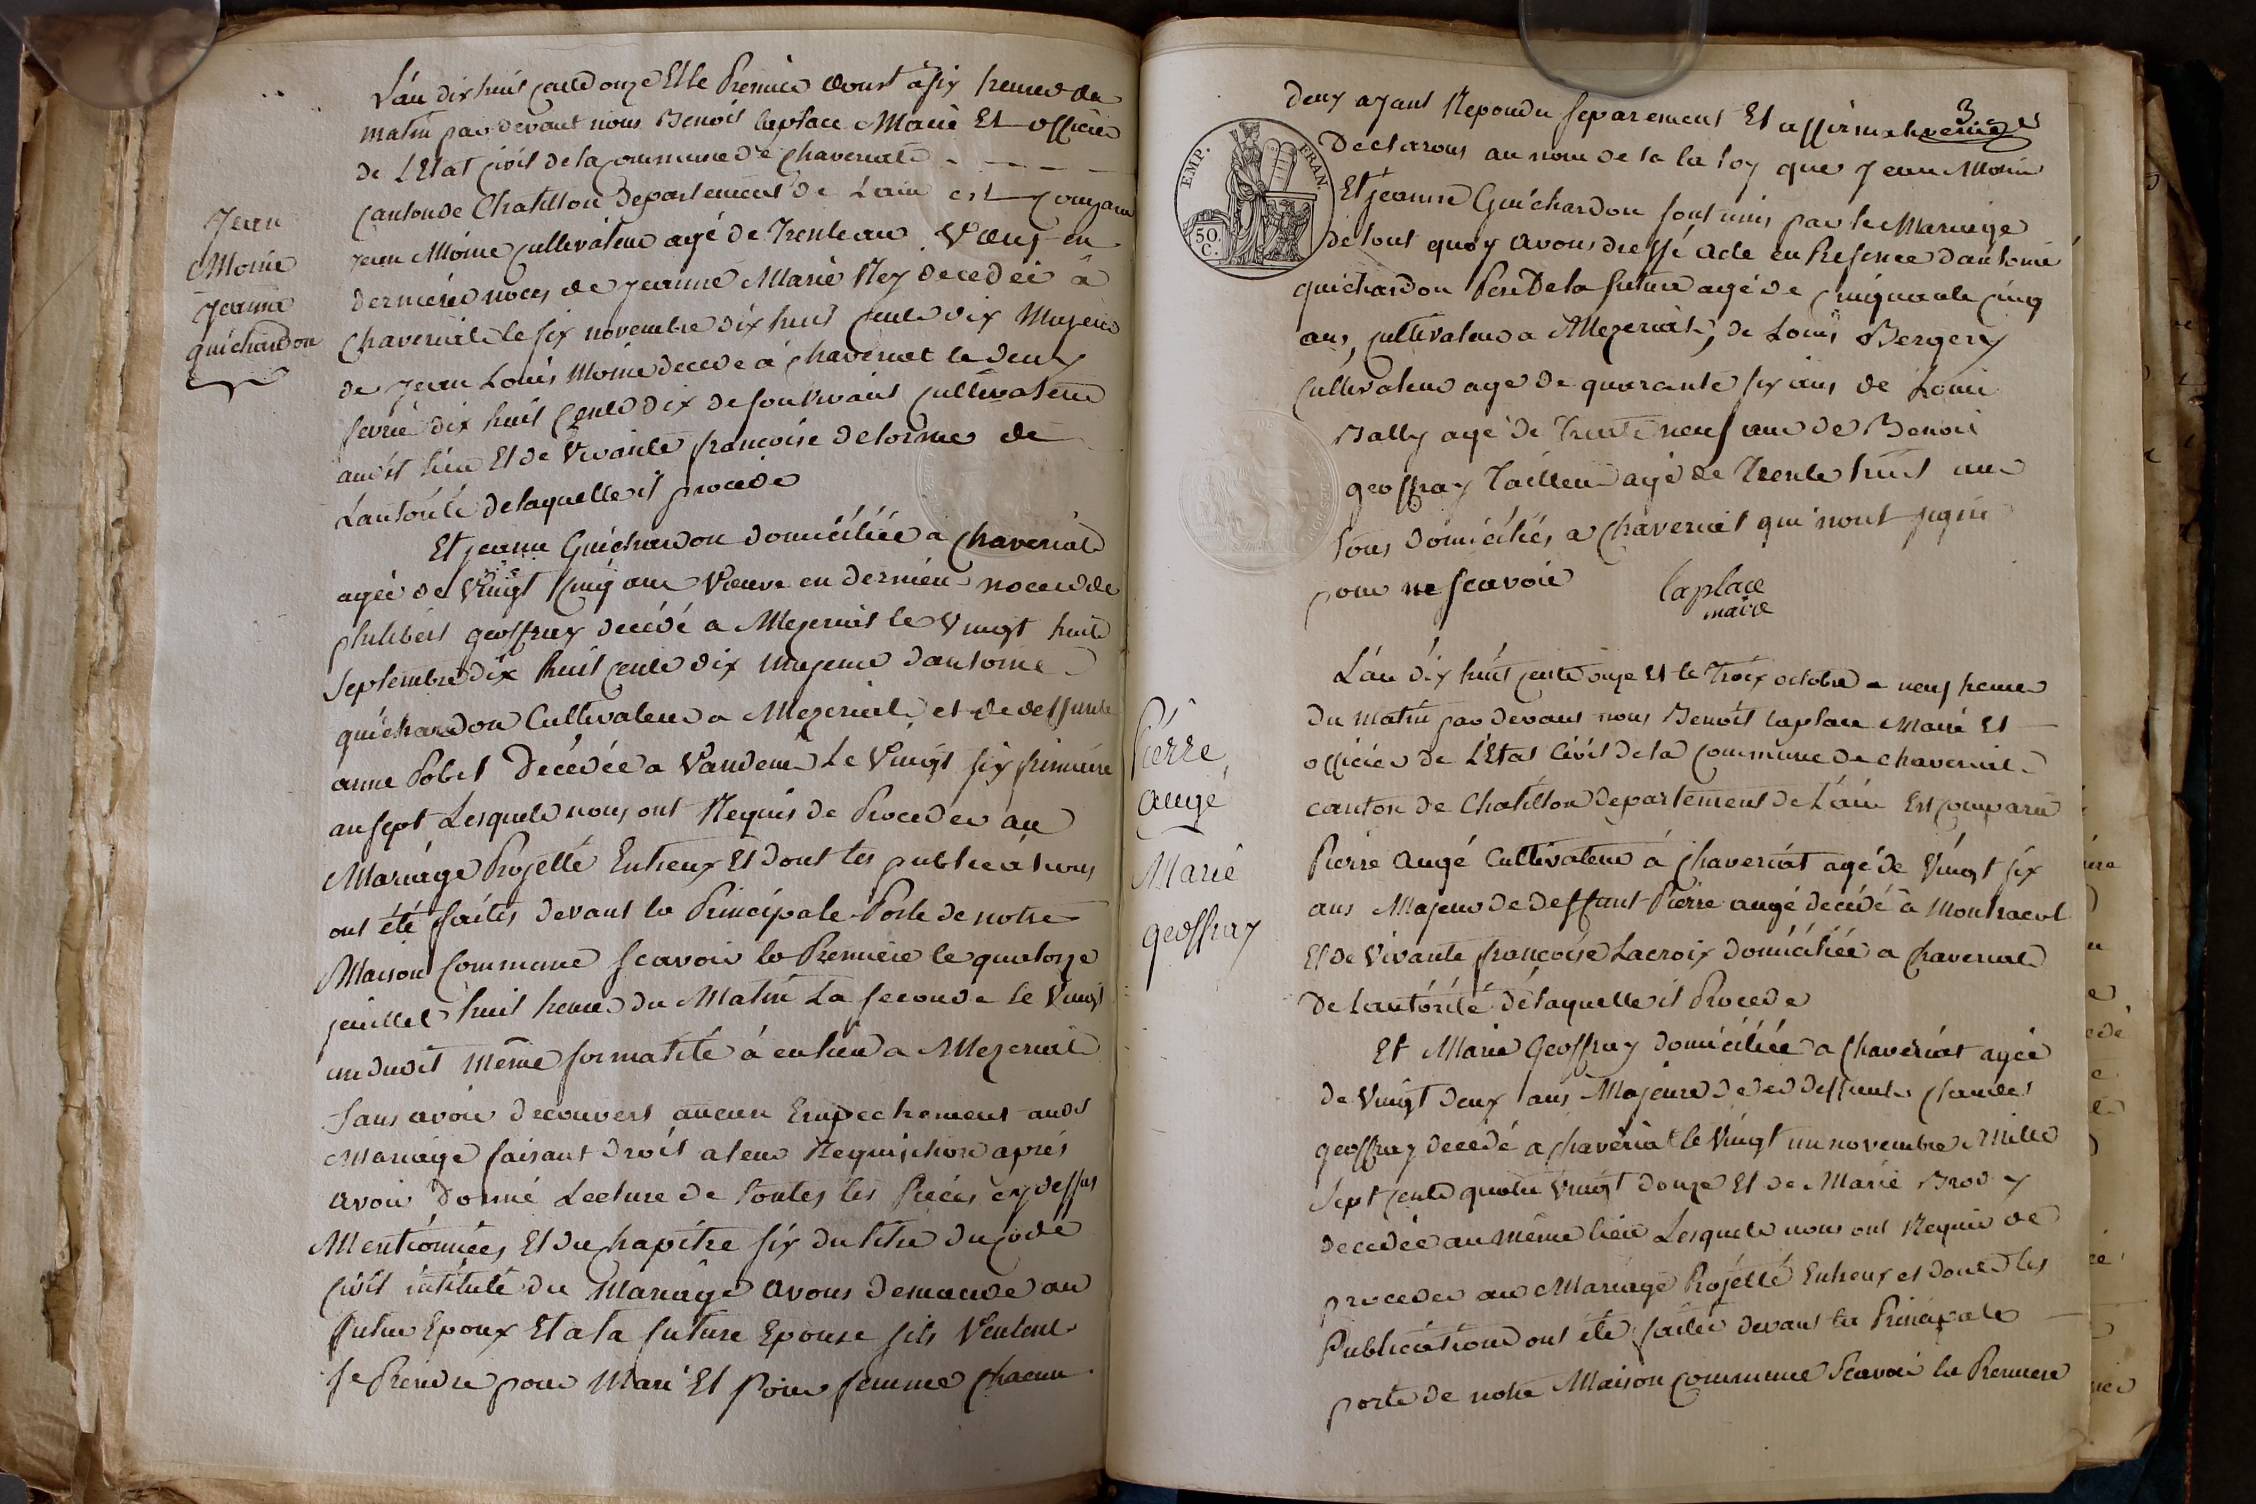 Jean
Moine
Jeanne
guichardon
L'an dix huit cent onze Et le Premier aoust à six heures du
matin par devant nous Benoit laplace Maire Et officier
de L'Etat Civil de la commune de Chaveriat
Canton de Chatillon Departement de Lain est comparu
Jean Moine cultivateur agé de Trente ans Veuf en
dernieres noces de Jeanne Marie Rey decedée à
Chaveriat le six novembre dix huit cent dix Majeur
de Jean Louis Moine decede à chaveriat le deux
fevrie dix huit cent dix de son vivant cultivateur
audit lieu Et de vivante francoise delorme de
Lautorité delaquelle il procede
Et jeanne Guichardon domiciliée a Chaveriat
agée de Vingt Cinq ans Veuve en derniere noces de
philibert geoffray decédé a Mezeriat le Vingt huit
Septembre dix huit cent dix Majeure dantoine
guichardon Cultivateur a Mezeriat et de deffunte
anne Pobel Decédée a Vandein Le Vingt six frimaire
an sept Lesquels nous ont Requis de Proceder au
Mariage Projetté Entreux Et dont les publications
ont été faites devant la Principale Porte de notre
Maison Commune scavoir la Premiere le quatorze
juillet huit heures du Matin La seconde le Vingt
un dudit même formalité à eu lieu a Mezeriat
Sans avoir decouvert aucun Empechement audt
Mariage faisant droit a leur Requisition après
avoir donné Lecture de toutes les Pieces cy dessus
Mentionnées Et du chapitre six du titre du Code
Civil intitulé du Mariage avons demandé au
futur Epoux Et a la future Epouse sils Veulent
se Prendre pour Mari Et pour femme chacun
3
deux ayant Repondu separement Et affirmativemt
EMP. FRAN.
50 C.
Declarons au nom de la la loy que Jean Moine
Et jeanne Guichardon sont unis par le Mariage
de tout quoy avons dressé acte en Presence dantoine
guichardon Pere De la future agé de cinquante cinq
ans, cultivateur a Mezeriat, de Louis Bergery
Cultivateur age de quarante six ans de Louis
Bally age de Trente neuf ans de Benoit
geoffray Tailleur agé de Trente huit ans
tous domiciliés a Chaveriat qui n'ont signé
pour ne scavoir
laplace
maire
Pierre
augé
Marie
geoffray
L'an dix huit cent onze Et le Troix octobre a neuf heures
du matin par devant nous Benoit laplace Maire Et
officier de L'Etat Civil de la Commune de chaveriat
canton de Chatillon departement de L'ain Est comparu
Pierre augé Cultivateur à Chaveriat agé de Vingt six
ans Majeur de deffunt Pierre augé decédé à Montracol
Et de Vivante francoise Lacroix domiciliée a Chaveriat
De Lautorité delaquelle il Procede
Et Marie Geoffray domiciliée a Chaveriat agée
de Vingt deux ans Majeure de deffunts Claude
geoffray decédé a Chaveriat le Vingt un novembre Mille
Sept cent quatre Vingt douze Et de Marie Brod y
decedée au même lieu Lesquels nous ont Requis de
proceder au Mariage Projetté Entreux et dont les
Publications ont été faites devant la Principale
porte de notre Maison commune Scavoir la Premiere